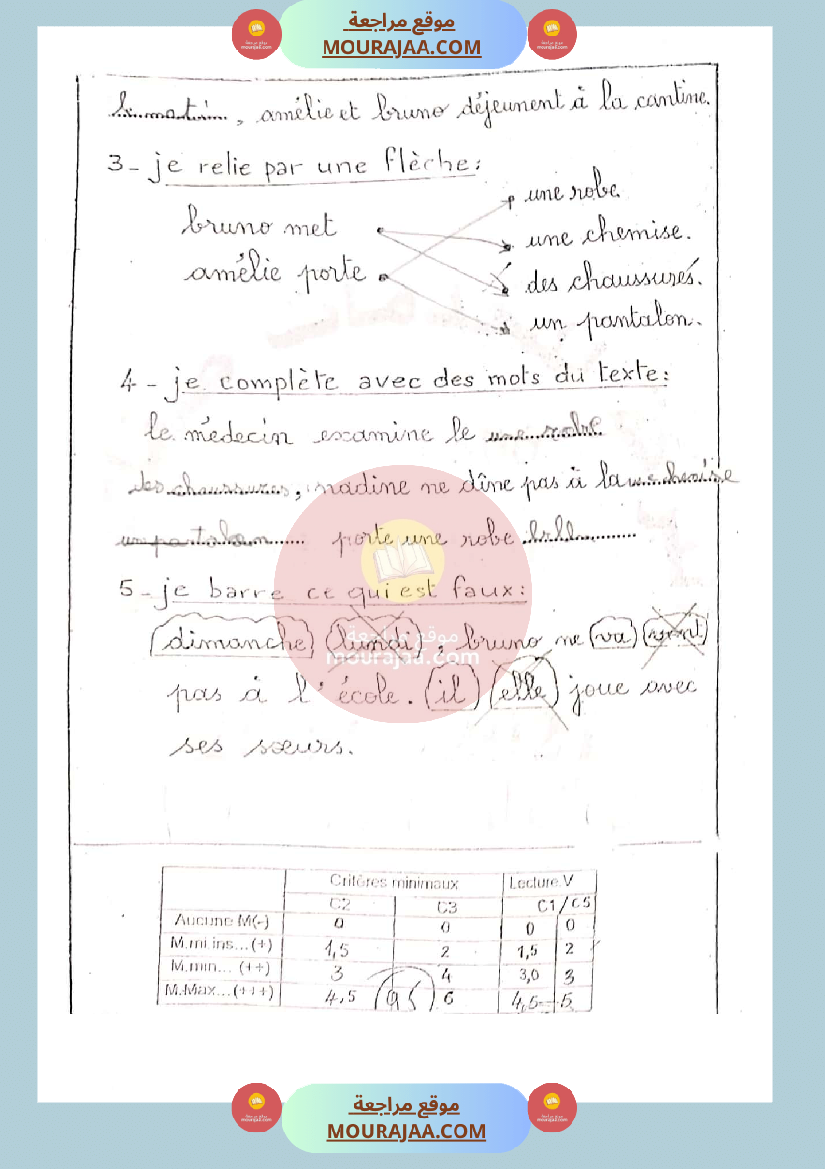 موقع مراجعة
MOURAJAA.COM
le mati , amélie et bruno déjeunent à la cantine.
3 - je relie par une flèche :
bruno met
amélie porte
une robe
une chemise.
des chaussures.
un pantalon.
4 - je complète avec des mots du texte :
le médecin examine le une robe
des chaussures, nadine ne dîne pas à la
un pantalon porte une robe
5 - je barre ce qui est faux :
(dimanche) (lundi), bruno ne (va) (vont)
pas à l'école. (il) (elle) joue avec
ses sœurs.
موقع مراجعة
mourajaa.com
Critères minimaux Lecture.V
C2 C3 C1/C5
Aucune M(-) 0 0 0 0
M.mi ins...(+) 1,5 2 1,5 2
M.min... (++) 3 4 3,0 3
M.Max...(+++) 4,5 6 4,5 5
موقع مراجعة
MOURAJAA.COM